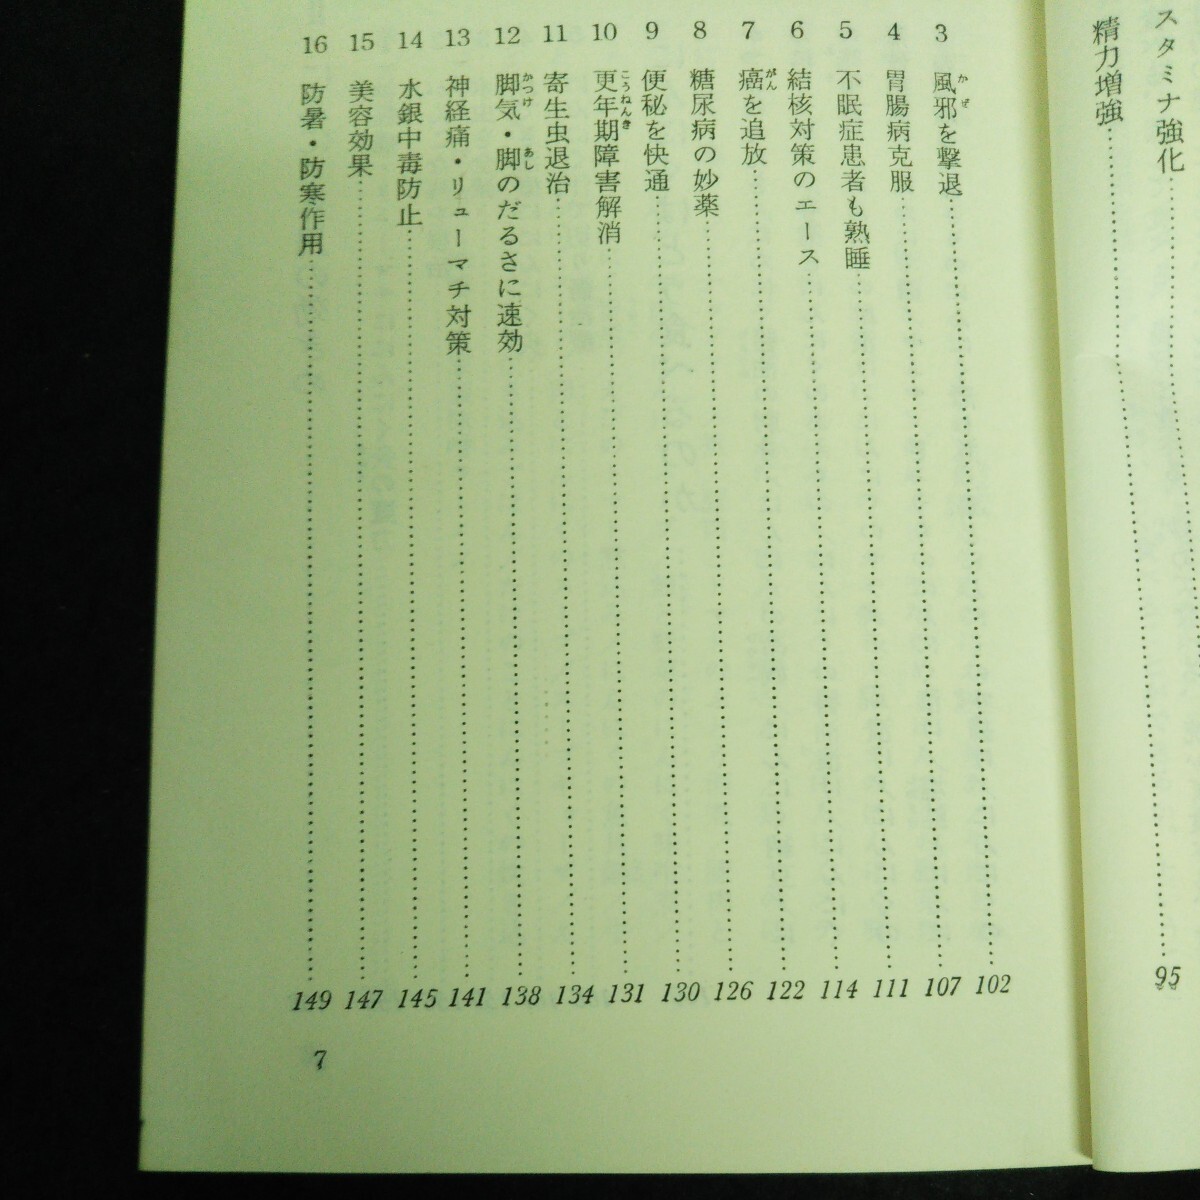 スタミナ強化
95
精力増強
3 風邪を撃退 102
4 胃腸病克服 107
5 不眠症患者も熟睡 111
6 結核対策のエース 114
7 癌を追放 122
8 糖尿病の妙薬 126
9 便秘を快通 130
10 更年期障害解消 131
11 寄生虫退治 134
12 脚気・脚のだるさに速効 138
13 神経痛・リューマチ対策 141
14 水銀中毒防止 145
15 美容効果 147
16 防暑・防寒作用 149
7